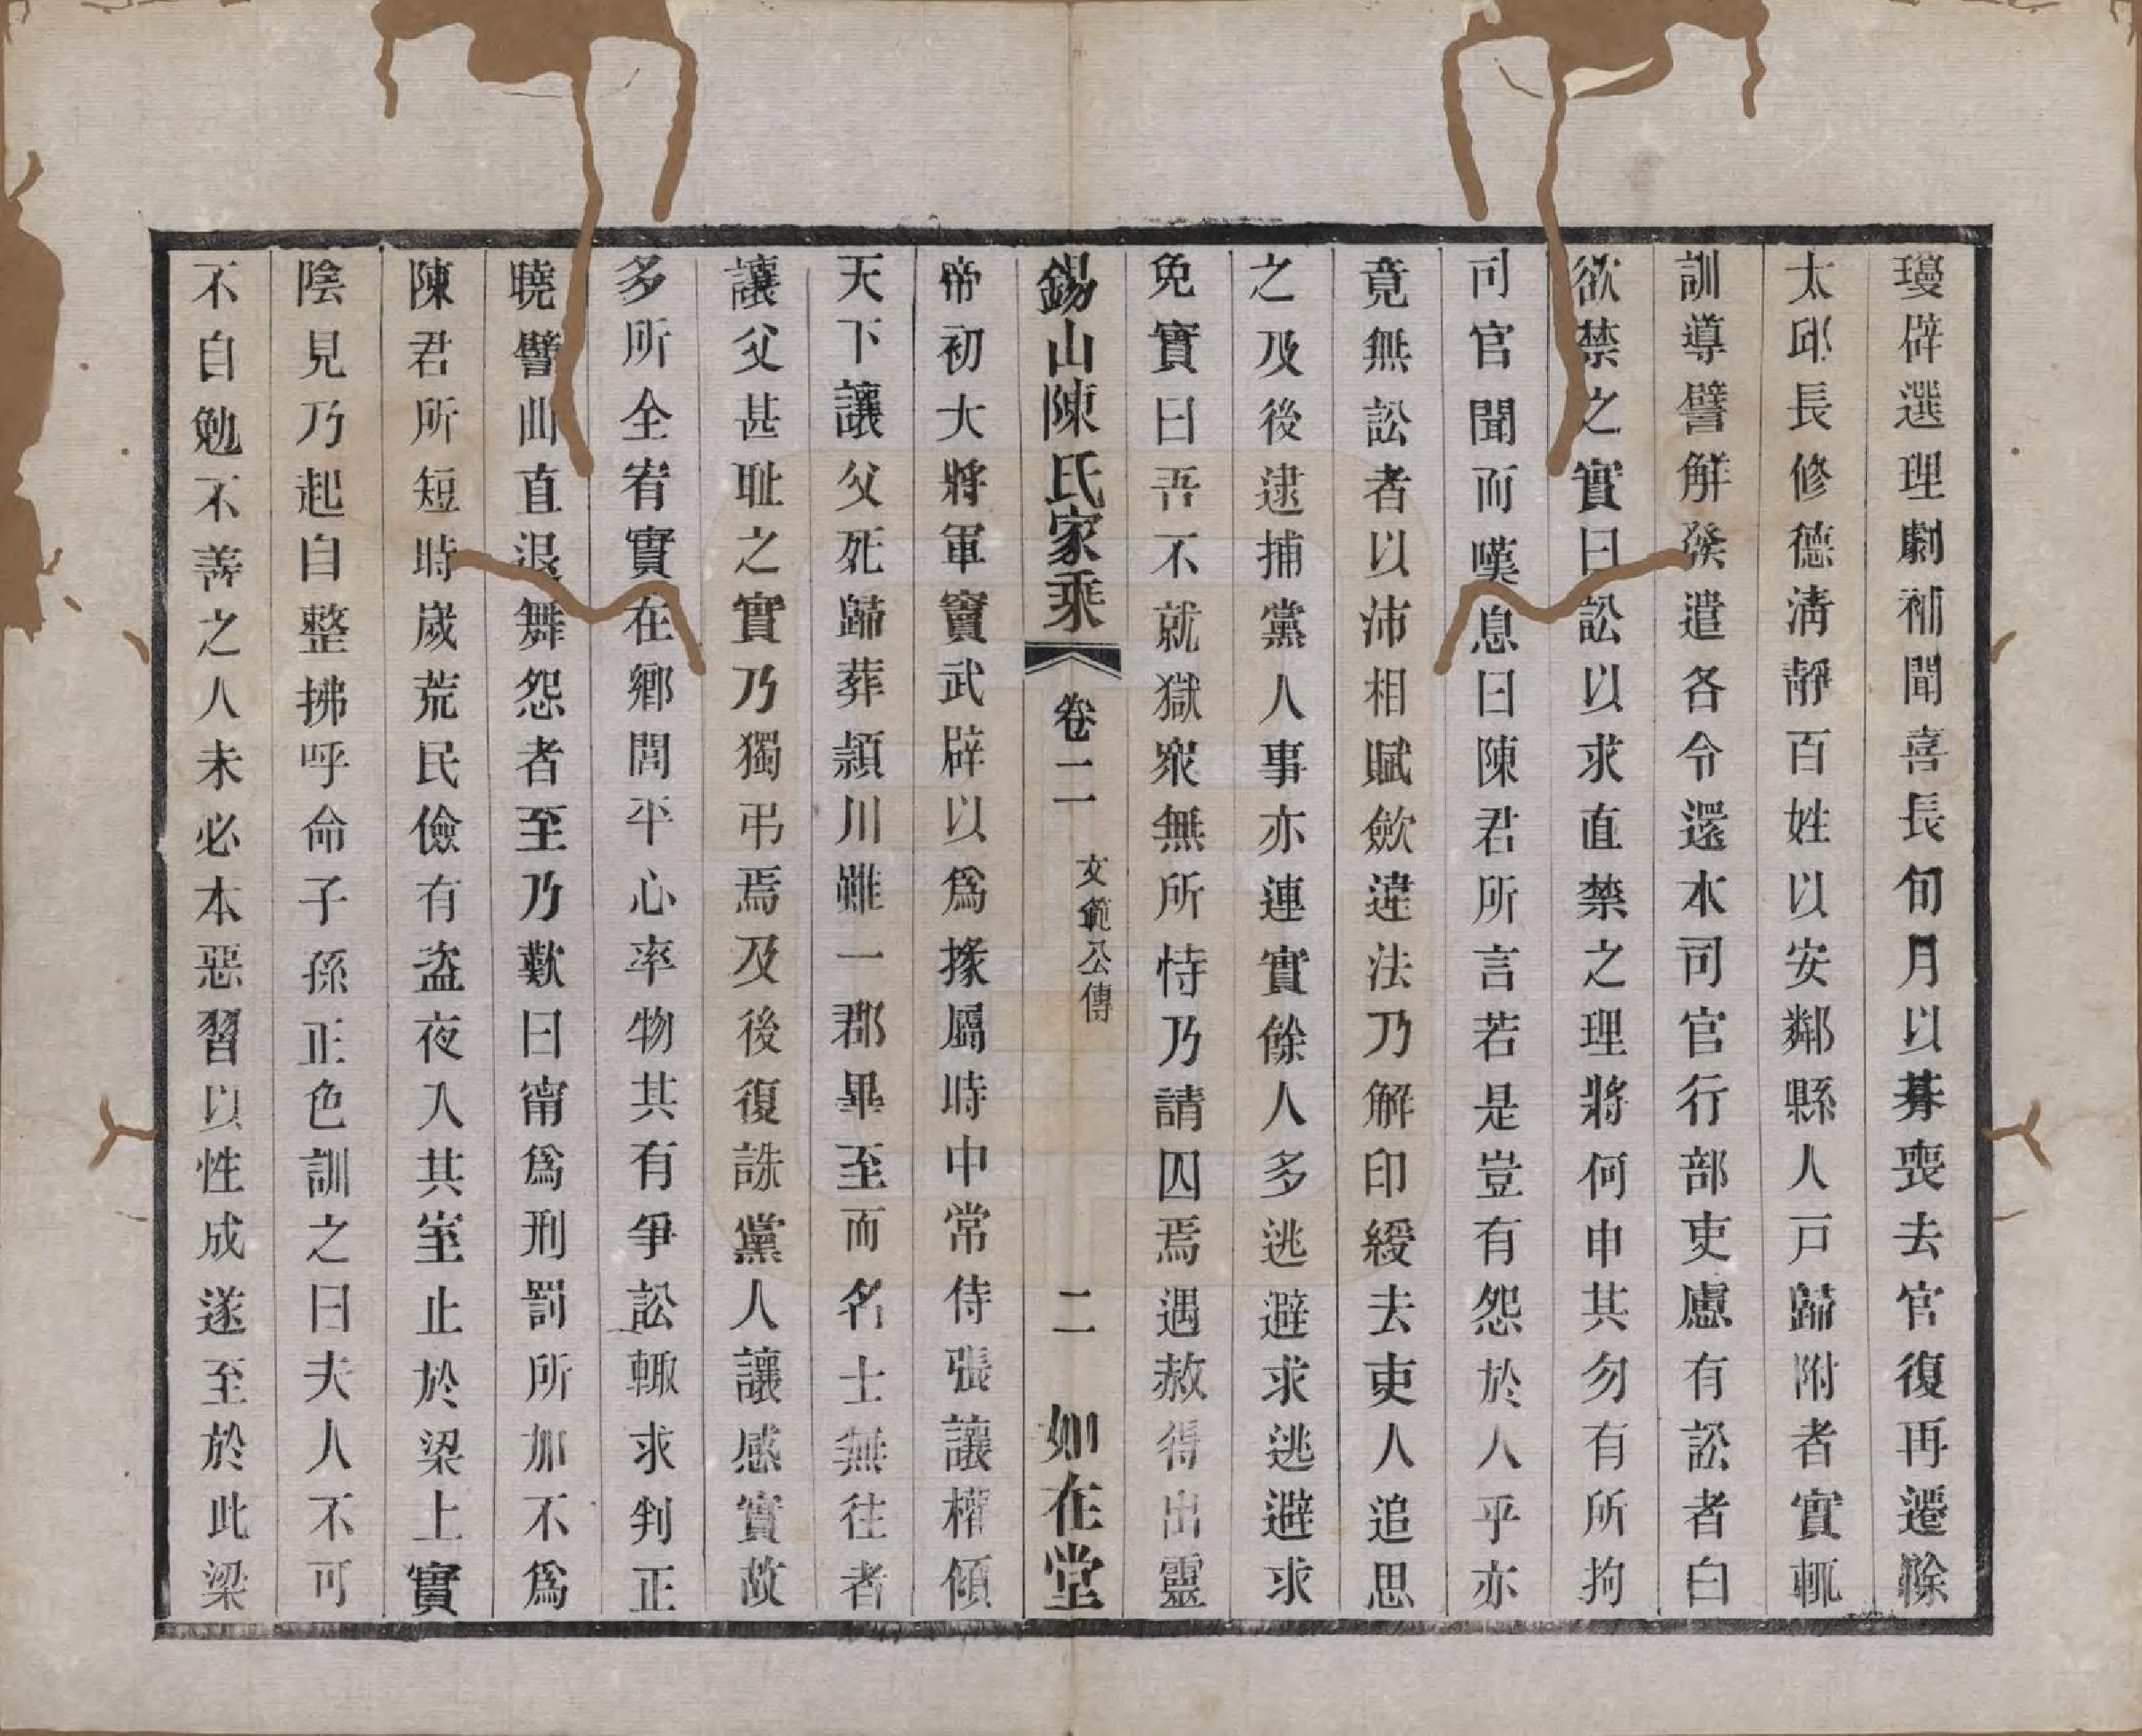 瓊辟選理劇補聞喜長旬月以朞喪去官復再遷除
太邱長修德淸靜百姓以安鄰縣人戸歸附者實輒
訓導譬解發遣各令還本司官行部吏慮有訟者白
欲禁之實曰訟以求直禁之理將何申其勿有所拘
司官聞而嘆息曰陳君所言若是豈有怨於人乎亦
竟無訟者以沛相賦斂違法乃解印綬去吏人追思
之及後逮捕黨人事亦連實餘人多逃避求逃避求
免實曰吾不就獄衆無所恃乃請囚焉遇赦得出靈
錫山陳氏家乘 卷二 文範公傳 二 如在堂
帝初大將軍竇武辟以爲掾屬時中常侍張讓權傾
天下讓父死歸葬潁川雖一郡畢至而名士無往者
讓父甚耻之實乃獨弔焉及後復誅黨人讓感實故
多所全宥實在鄉閭平心率物其有爭訟輒求判正
曉譬曲直退舞怨者至乃歎曰甯爲刑罰所加不爲
陳君所短時歲荒民儉有盜夜入其室止於梁上實
陰見乃起自整拂呼命子孫正色訓之曰夫人不可
不自勉不善之人未必本惡習以性成遂至於此梁